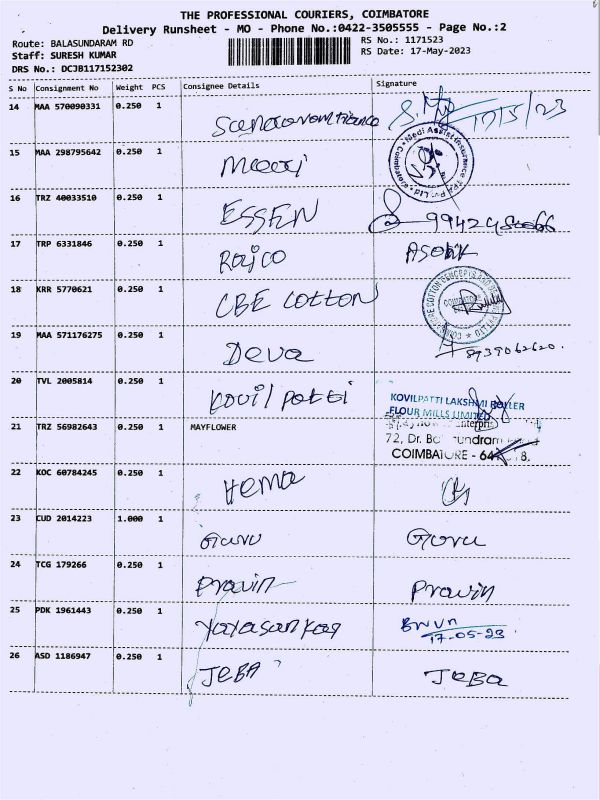 THE PROFESSIONAL COURIERS, COIMBATORE
Delivery Runsheet - MO - Phone No.:0422-3505555 - Page No.:2
Route: BALASUNDARAM RD
RS No.: 1171523
Staff: SURESH KUMAR
RS Date: 17-May-2023
DRS No.: DCJB117152302
S No Consignment No Weight PCS Consignee Details Signature
14 MAA 570090331 0.250 1 17/5/23
15 MAA 298795642 0.250 1 Medi Assist Insurance TPA Pvt Ltd
16 TRZ 40033510 0.250 1 ESSEN
17 TRP 6331846 0.250 1 Rajco ASOKK
18 KRR 5770621 0.250 1 CBE COTTON
19 MAA 571176275 0.250 1 Deva 8939062620.
20 TVL 2005814 0.250 1 Kovilpatti KOVILPATTI LAKSHMI ROLLER
FLOUR MILLS LIMITED
21 TRZ 56982643 0.250 1 MAYFLOWER
72, Dr. Ba
COIMBATORE - 64
22 KOC 60784245 0.250 1 Hema
23 CUD 2014223 1.000 1 Guru Guru
24 TCG 179266 0.250 1 Pravin Pravin
25 PDK 1961443 0.250 1
17-05-23
26 ASD 1186947 0.250 1 JEBA JEBA